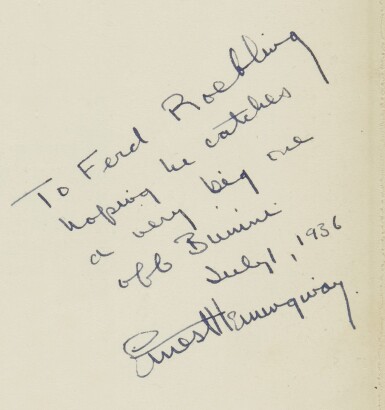 To Ferd Roebling
hoping he catches
a very big one
off Bimini
July 1, 1936
Ernest Hemingway.